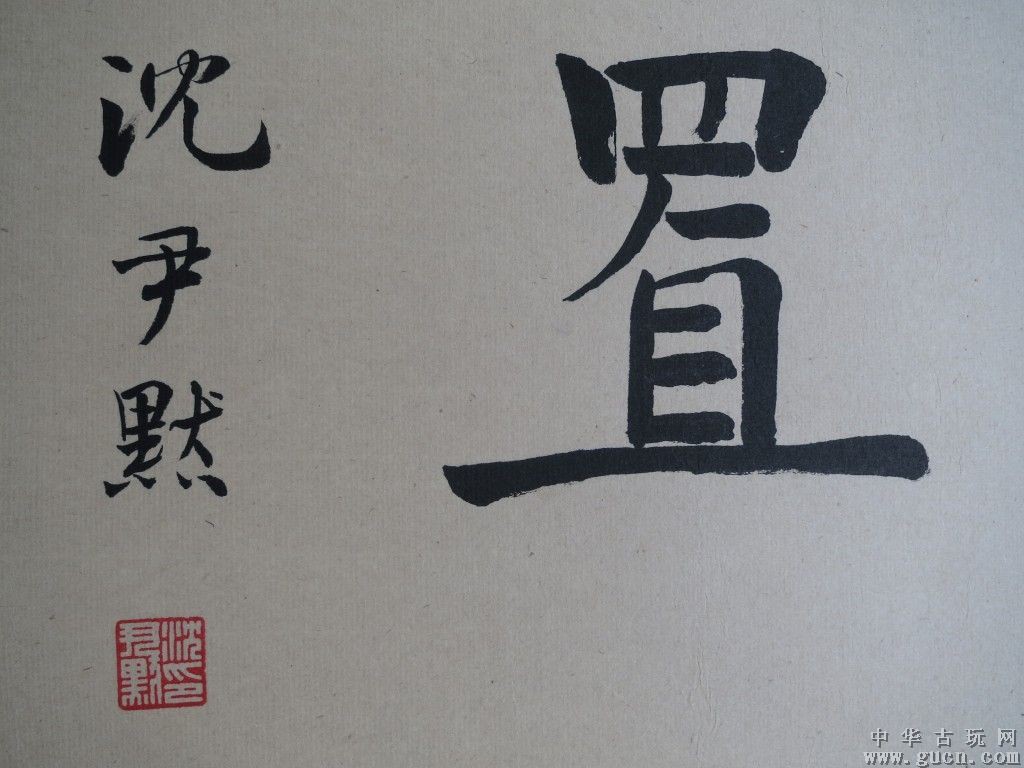 置
沈尹默
沈尹默印
中华古玩网
www.gucn.com